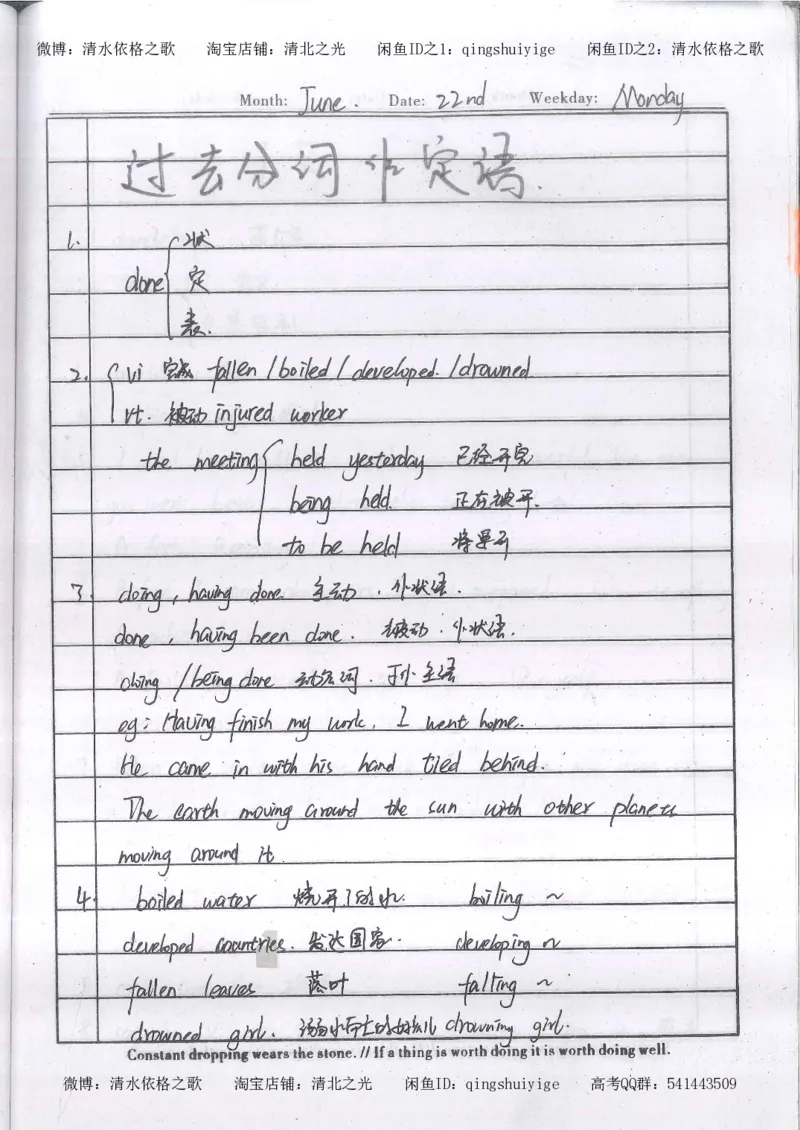 微博：清水依格之歌 淘宝店铺：清北之光 闲鱼ID之1：qingshuiyige 闲鱼ID之2：清水依格之歌
Month: June. Date: 22nd Weekday: Monday
过去分词作定语.
1. 状
done 定
表.
2. vi 完成 fallen / boiled / developed. / drowned.
vt. 被动 injured worker
the meeting held yesterday 已经开完
being held. 正在被开.
to be held 将要开
3. doing, having done. 主动. 作状语.
done, having been done. 被动. 作状语.
doing / being done 动名词. 作主语
eg: Having finish my work, I went home.
He came in with his hand tied behind.
The earth moving around the sun with other planets
moving around it.
4. boiled water 烧开了的水. boiling ~
developed countries. 发达国家. developing ~
fallen leaves 落叶 falling ~
drowned girl. 溺水 drowning girl.
Constant dropping wears the stone. // If a thing is worth doing it is worth doing well.
微博：清水依格之歌 淘宝店铺：清北之光 闲鱼ID：qingshuiyige 高考QQ群：541443509